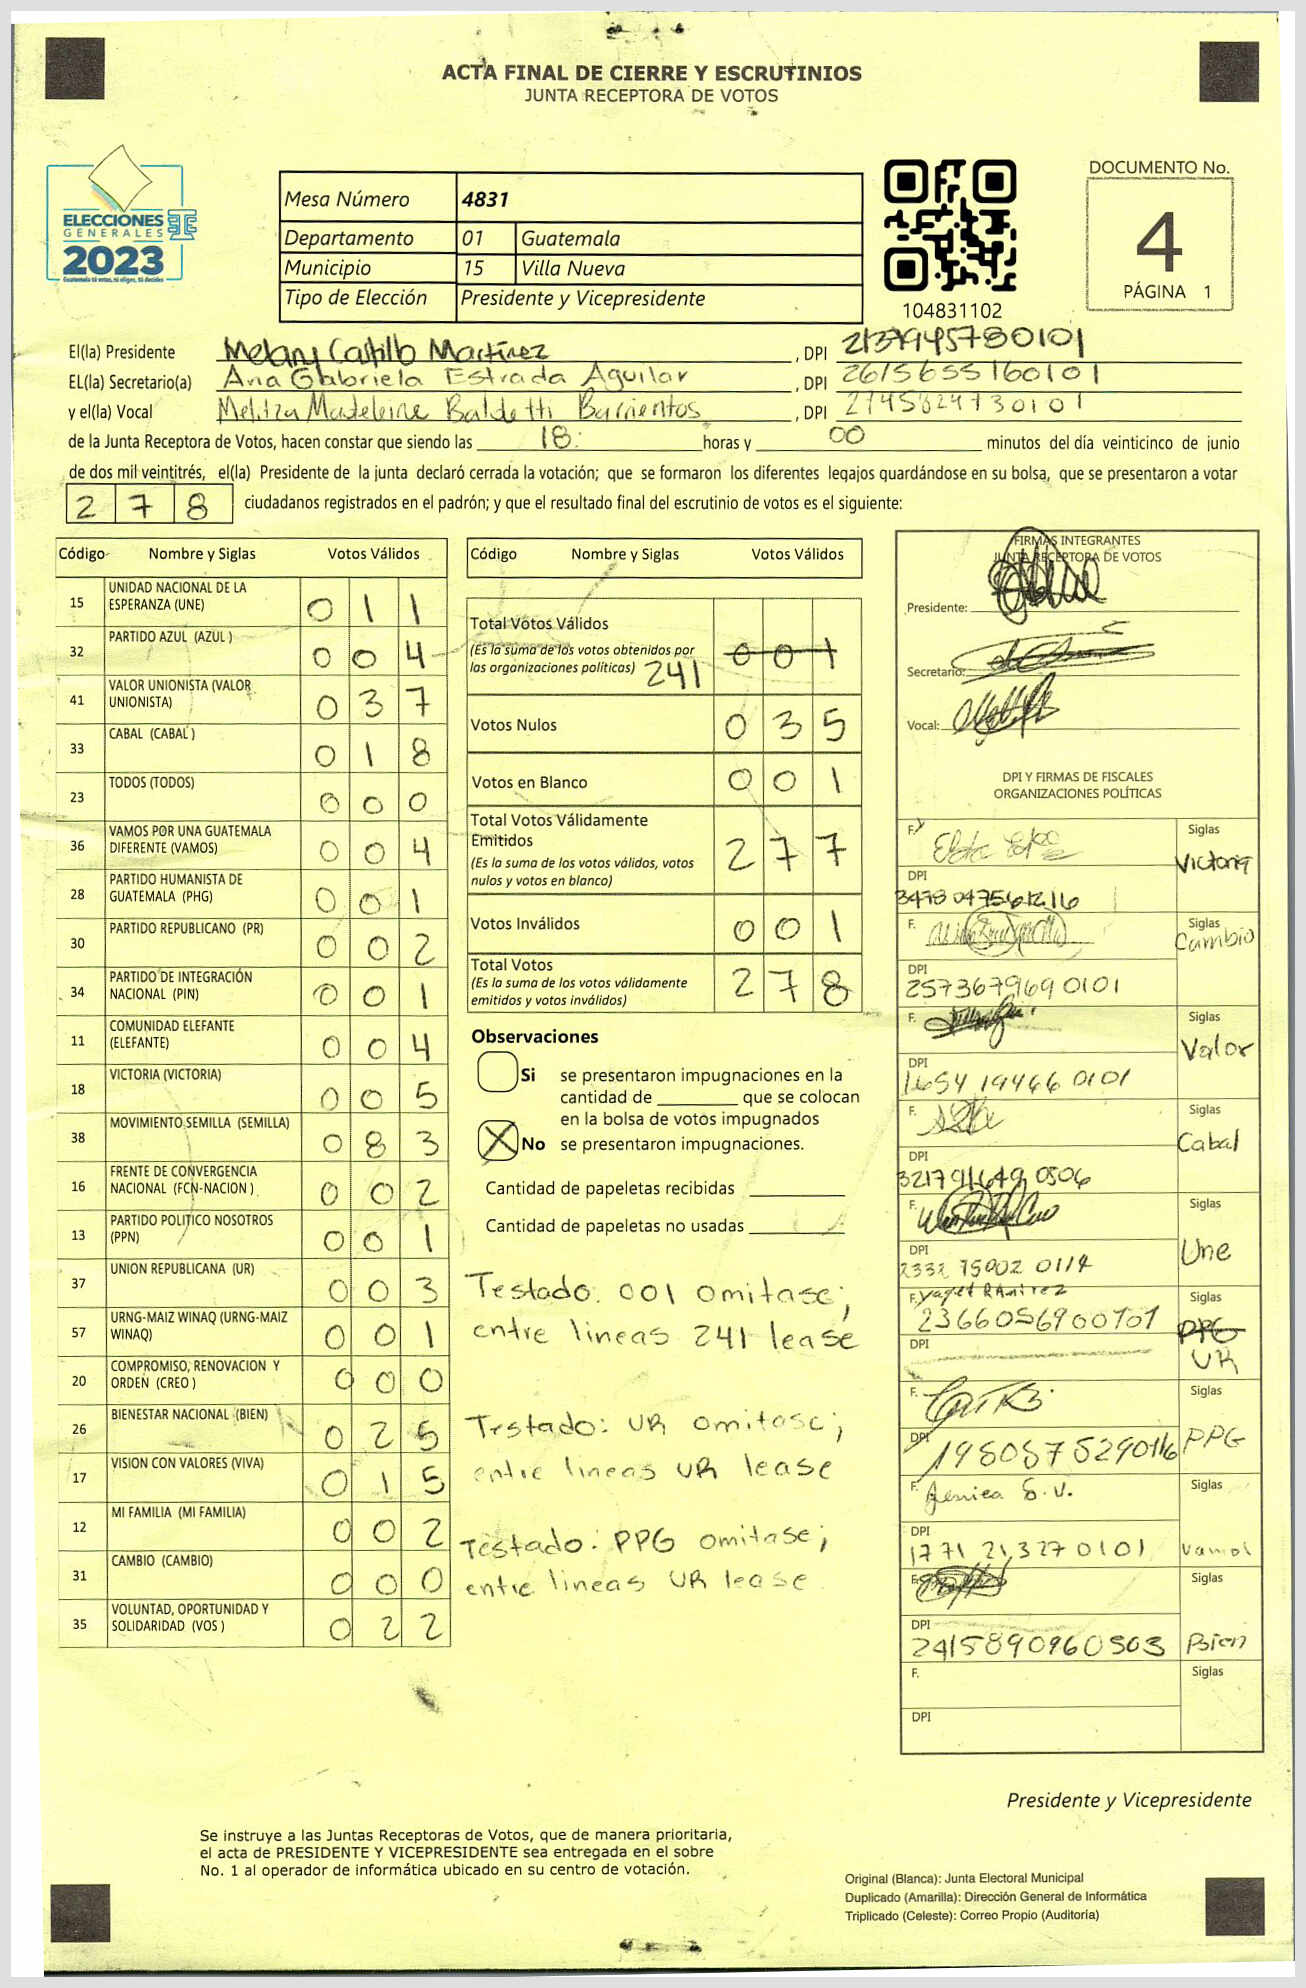 ACTA FINAL DE CIERRE Y ESCRUTINIOS
JUNTA RECEPTORA DE VOTOS
ELECCIONES
GENERALES
2023
Guatemala tú votas, tú eliges, tú decides
Mesa Número 4831
Departamento 01 Guatemala
Municipio 15 Villa Nueva
Tipo de Elección Presidente y Vicepresidente
104831102
DOCUMENTO No.
4
PÁGINA 1
El(la) Presidente Melany Castillo Martínez, DPI 2137945780101
EL(la) Secretario(a) Ana Gabriela Estrada Aguilar, DPI 2615655160101
y el(la) Vocal Melitza Madeleine Baldetti Barrientos, DPI 2745824730101
de la Junta Receptora de Votos, hacen constar que siendo las 18: horas y 00 minutos del día veinticinco de junio
de dos mil veintitrés, el(la) Presidente de la junta declaró cerrada la votación; que se formaron los diferentes legajos quardándose en su bolsa, que se presentaron a votar
278 ciudadanos registrados en el padrón; y que el resultado final del escrutinio de votos es el siguiente:
Código Nombre y Siglas Votos Válidos
15 UNIDAD NACIONAL DE LA ESPERANZA (UNE) 011
32 PARTIDO AZUL (AZUL ) 004
41 VALOR UNIONISTA (VALOR UNIONISTA) 037
33 CABAL (CABAL ) 018
23 TODOS (TODOS) 000
36 VAMOS POR UNA GUATEMALA DIFERENTE (VAMOS) 004
28 PARTIDO HUMANISTA DE GUATEMALA (PHG) 001
30 PARTIDO REPUBLICANO (PR) 002
34 PARTIDO DE INTEGRACIÓN NACIONAL (PIN) 001
11 COMUNIDAD ELEFANTE (ELEFANTE) 004
18 VICTORIA (VICTORIA) 005
38 MOVIMIENTO SEMILLA (SEMILLA) 083
16 FRENTE DE CONVERGENCIA NACIONAL (FCN-NACION ) 002
13 PARTIDO POLITICO NOSOTROS (PPN) 001
37 UNION REPUBLICANA (UR) 003
57 URNG-MAIZ WINAQ (URNG-MAIZ WINAQ) 001
20 COMPROMISO, RENOVACION Y ORDEN (CREO ) 000
26 BIENESTAR NACIONAL (BIEN) 025
17 VISION CON VALORES (VIVA) 015
12 MI FAMILIA (MI FAMILIA) 002
31 CAMBIO (CAMBIO) 000
35 VOLUNTAD, OPORTUNIDAD Y SOLIDARIDAD (VOS ) 022
Código Nombre y Siglas Votos Válidos
Total Votos Válidos
(Es la suma de los votos obtenidos por
las organizaciones políticas) 241 001
Votos Nulos 035
Votos en Blanco 001
Total Votos Válidamente
Emitidos 277
(Es la suma de los votos válidos, votos
nulos y votos en blanco)
Votos Inválidos 001
Total Votos 278
(Es la suma de los votos válidamente
emitidos y votos inválidos)
Observaciones
Si se presentaron impugnaciones en la
cantidad de ________ que se colocan
en la bolsa de votos impugnados
X No se presentaron impugnaciones.
Cantidad de papeletas recibidas
Cantidad de papeletas no usadas
Testado: 001 omitase;
entre lineas 241 lease
Testado: UR omitase;
entre lineas UR lease
Testado: PPG omitase;
entre lineas UR lease
FIRMAS INTEGRANTES
JUNTA RECEPTORA DE VOTOS
Presidente:
Secretario:
Vocal:
DPI Y FIRMAS DE FISCALES
ORGANIZACIONES POLÍTICAS
F. Siglas
Victoria
DPI
F. Siglas
Cambio
DPI
2573679690101
F. Siglas
Valor
DPI
1654194660101
F. Siglas
Cabal
DPI
3217916490506
F. Siglas
Une
DPI
2332750020114
F. Yaget Ramirez Siglas
2366056900101 PPG
DPI UR
F. Siglas
PPG
DPI
1980875290116
F. Jenica S.V. Siglas
DPI
1771213270101 Vamos
F. Siglas
DPI
2415890960503 Bien
F. Siglas
DPI
Presidente y Vicepresidente
Se instruye a las Juntas Receptoras de Votos, que de manera prioritaria,
el acta de PRESIDENTE Y VICEPRESIDENTE sea entregada en el sobre
No. 1 al operador de informática ubicado en su centro de votación.
Original (Blanca): Junta Electoral Municipal
Duplicado (Amarilla): Dirección General de Informática
Triplicado (Celeste): Correo Propio (Auditoría)